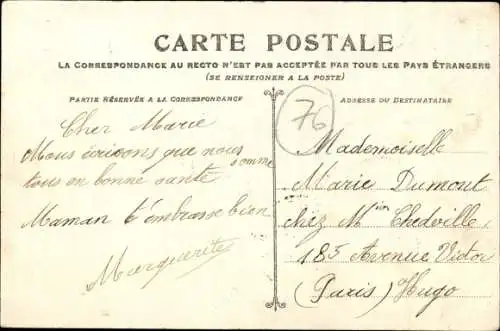 CARTE POSTALE
LA CORRESPONDANCE AU RECTO N'EST PAS ACCEPTÉE PAR TOUS LES PAYS ÉTRANGERS
(SE RENSEIGNER A LA POSTE)
PARTIE RÉSERVÉE A LA CORRESPONDANCE
Cher Marie
Nous écrivons que nous
somme
tous en bonne santé
Maman t'embrasse bien
Marguerite
76
ADRESSE DU DESTINATAIRE
Mademoiselle
Marie Dumont
chez Mr
185 Avenue Victor
(Paris) Hugo